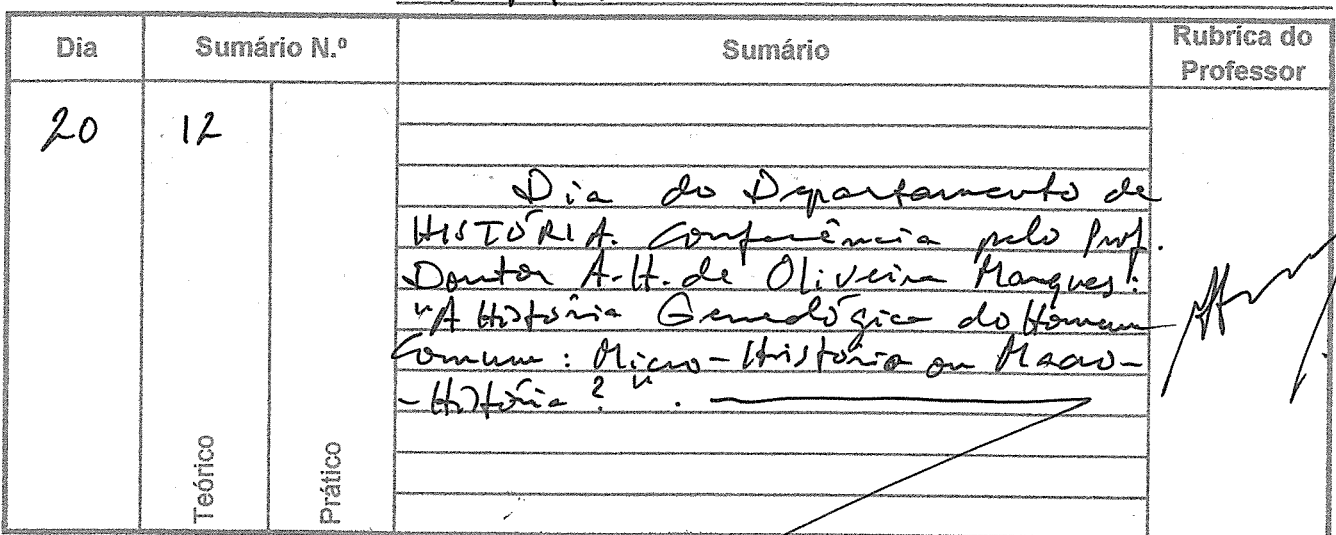 Dia Sumário N.º Sumário Rubrica do Professor
20 12
Teórico Prático
Dia do Departamento de
HISTÓRIA. Conferência pelo Prof.
Doutor A.H. de Oliveira Marques:
"A História Genealógica do Homem
Comum: Micro-História ou Macro-
-História?".